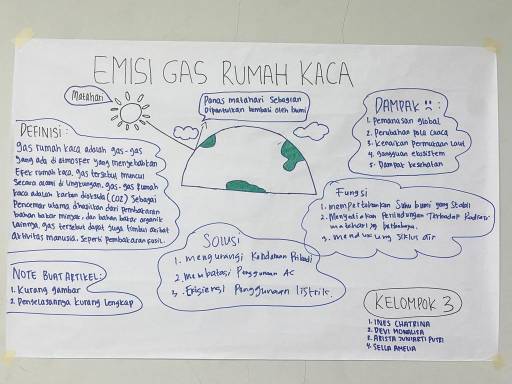 EMISI GAS RUMAH KACA
Matahari
Panas matahari sebagian
dipantulkan kembali oleh bumi
DAMPAK :
1. Pemanasan global
2. Perubahan pola cuaca
3. Kenaikan Permukaan Laut
4. Gangguan ekosistem
5. Dampak kesehatan
DEFINISI :
Gas rumah kaca adalah gas-gas
yang ada di atmosfer yang menyebabkan
Efek rumah kaca, gas tersebut muncul
secara alami di lingkungan. gas-gas Rumah
kaca adalah karbon dioksida (CO2) sebagai
Pencemar utama dihasilkan dari pembakaran
bahan bakar minyak, dan bahan bakar organik
lainnya, gas tersebut dapat juga timbul akibat
aktivitas manusia. Seperti pembakaran fosil.
Fungsi
1. mempertahankan Suhu bumi yang Stabil
2. Menyediakan Perlindungan Terhadap Radiasi
matahari yg berbahaya.
3. mendukung siklus air
SOLUSI
1. mengurangi Kendaraan Pribadi
2. Membatasi Penggunaan AC
3. Efisiensi Penggunaan listrik.
NOTE BUAT ARTIKEL :
1. Kurang gambar
2. Penjelasannya kurang lengkap
KELOMPOK 3
1. INES CHATRINA
2. DEVI MONALISA
3. ARISTA JUNIARTI PUTRI
4. SELLA AMELIA